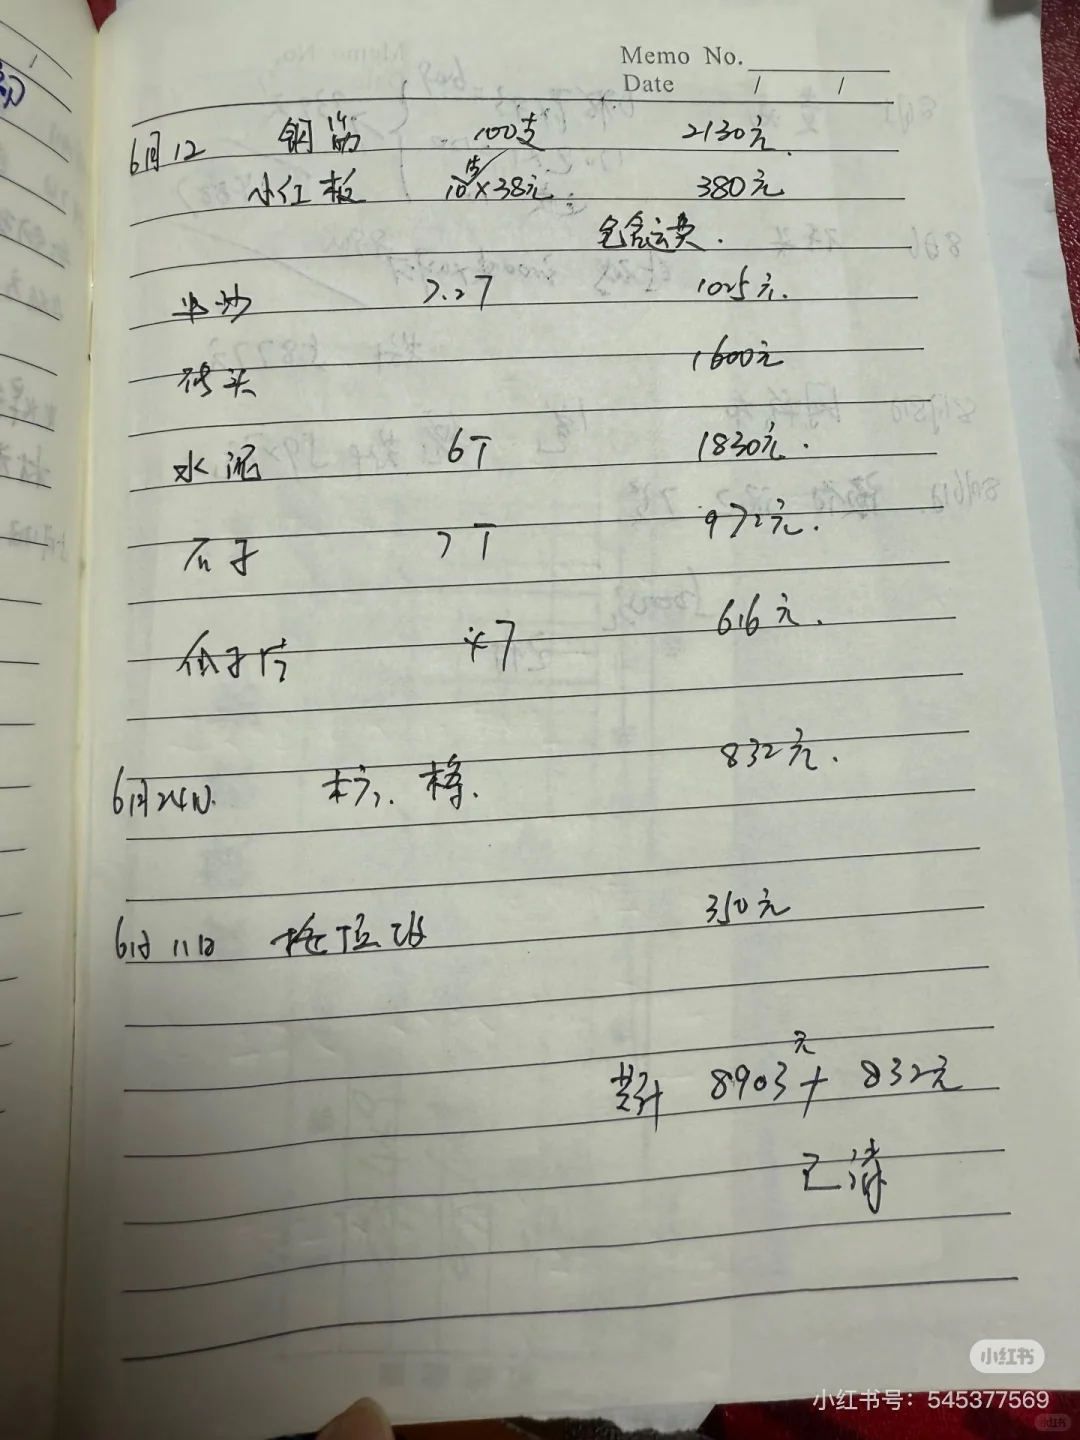 Memo No.
Date / /
6月12 钢筋 14 100支 2130元.
小红板 10块×38元. 380元
包含运费.
中沙 7.2T 1025元.
砖头 1600元
水泥 6T 1830元.
石子 7T 972元.
瓜子片 ×7 616元.
6月24日. 832元.
6月11日 350元
共计 8903元 + 832元
已清
小红书
小红书号：545377569
小红书